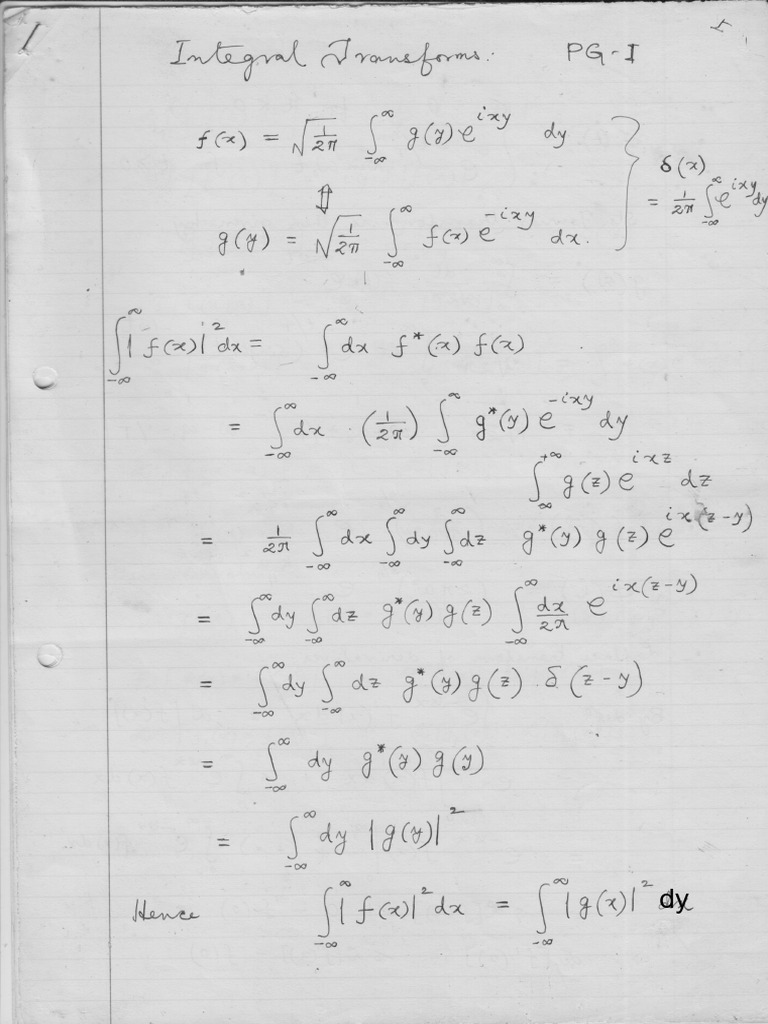 I
Integral Transforms. PG-I
f(x) = √(1/2π) ∫_{-∞}^{∞} g(y) e^{ixy} dy
⇕
g(y) = √(1/2π) ∫_{-∞}^{∞} f(x) e^{-ixy} dx.
} δ(x)
= 1/2π ∫_{-∞}^{∞} e^{ixy} dy
∫_{-∞}^{∞} |f(x)|² dx = ∫_{-∞}^{∞} dx f*(x) f(x)
= ∫_{-∞}^{∞} dx · (1/2π) ∫_{-∞}^{∞} g*(y) e^{-ixy} dy
∫_{-∞}^{+∞} g(z) e^{ixz} dz
= 1/2π ∫_{-∞}^{∞} dx ∫_{-∞}^{∞} dy ∫_{-∞}^{∞} dz g*(y) g(z) e^{ix(z-y)}
= ∫_{-∞}^{∞} dy ∫_{-∞}^{∞} dz g*(y) g(z) ∫_{-∞}^{∞} dx/2π e^{ix(z-y)}
= ∫_{-∞}^{∞} dy ∫_{-∞}^{∞} dz g*(y) g(z) δ(z-y)
= ∫_{-∞}^{∞} dy g*(y) g(y)
= ∫_{-∞}^{∞} dy |g(y)|²
Hence ∫_{-∞}^{∞} |f(x)|² dx = ∫_{-∞}^{∞} |g(x)|² dy